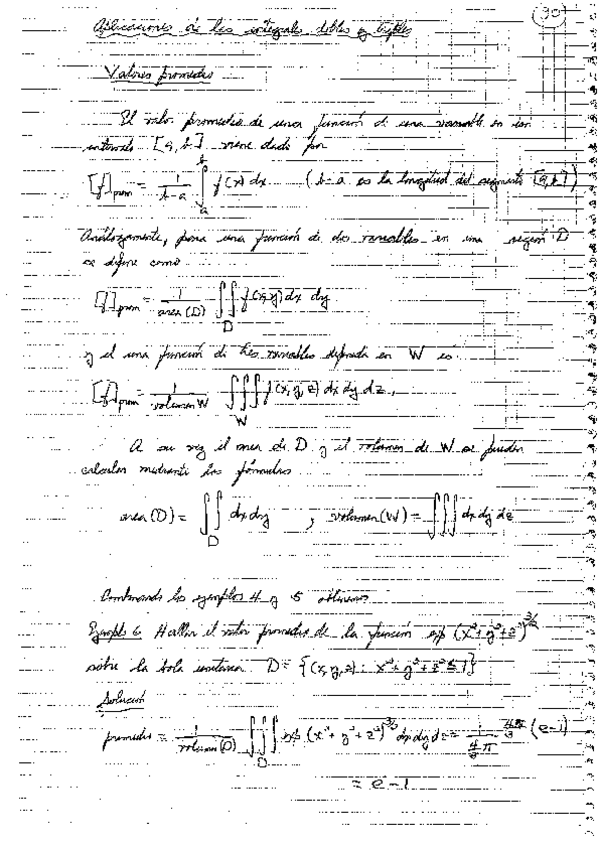 30
Aplicaciones de las integrales dobles y triples
Valores promedio
El valor promedio de una función de una variable en un
intervalo [a,b] viene dado por
[f]prom = 1/(b-a) ∫_a^b f(x) dx (b-a es la longitud del segmento [a,b])
Análogamente, para una función de dos variables en una región D
se define como
[f]prom = 1/area(D) ∬_D f(x,y) dx dy
y el una función de tres variables definida en W es
[f]prom = 1/volumen W ∭_W f(x,y,z) dx dy dz,
A su vez el area de D y el volumen de W se pueden
calcular mediante las fórmulas
area(D) = ∬_D dx dy , volumen(W) = ∭ dx dy dz
los ejemplos 4 y 5 obtenemos
Ejemplo 6 Hallar el valor promedio de la función exp (x²+y²+z²)^3/2
sobre la bola unitaria D = {(x,y,z): x²+y²+z² ≤ 1}
Solución
promedio = 1/volumen(D) ∭_D exp (x²+y²+z²)^3/2 dx dy dz = 1/(4/3 π) 4π/3 (e-1)
= e-1